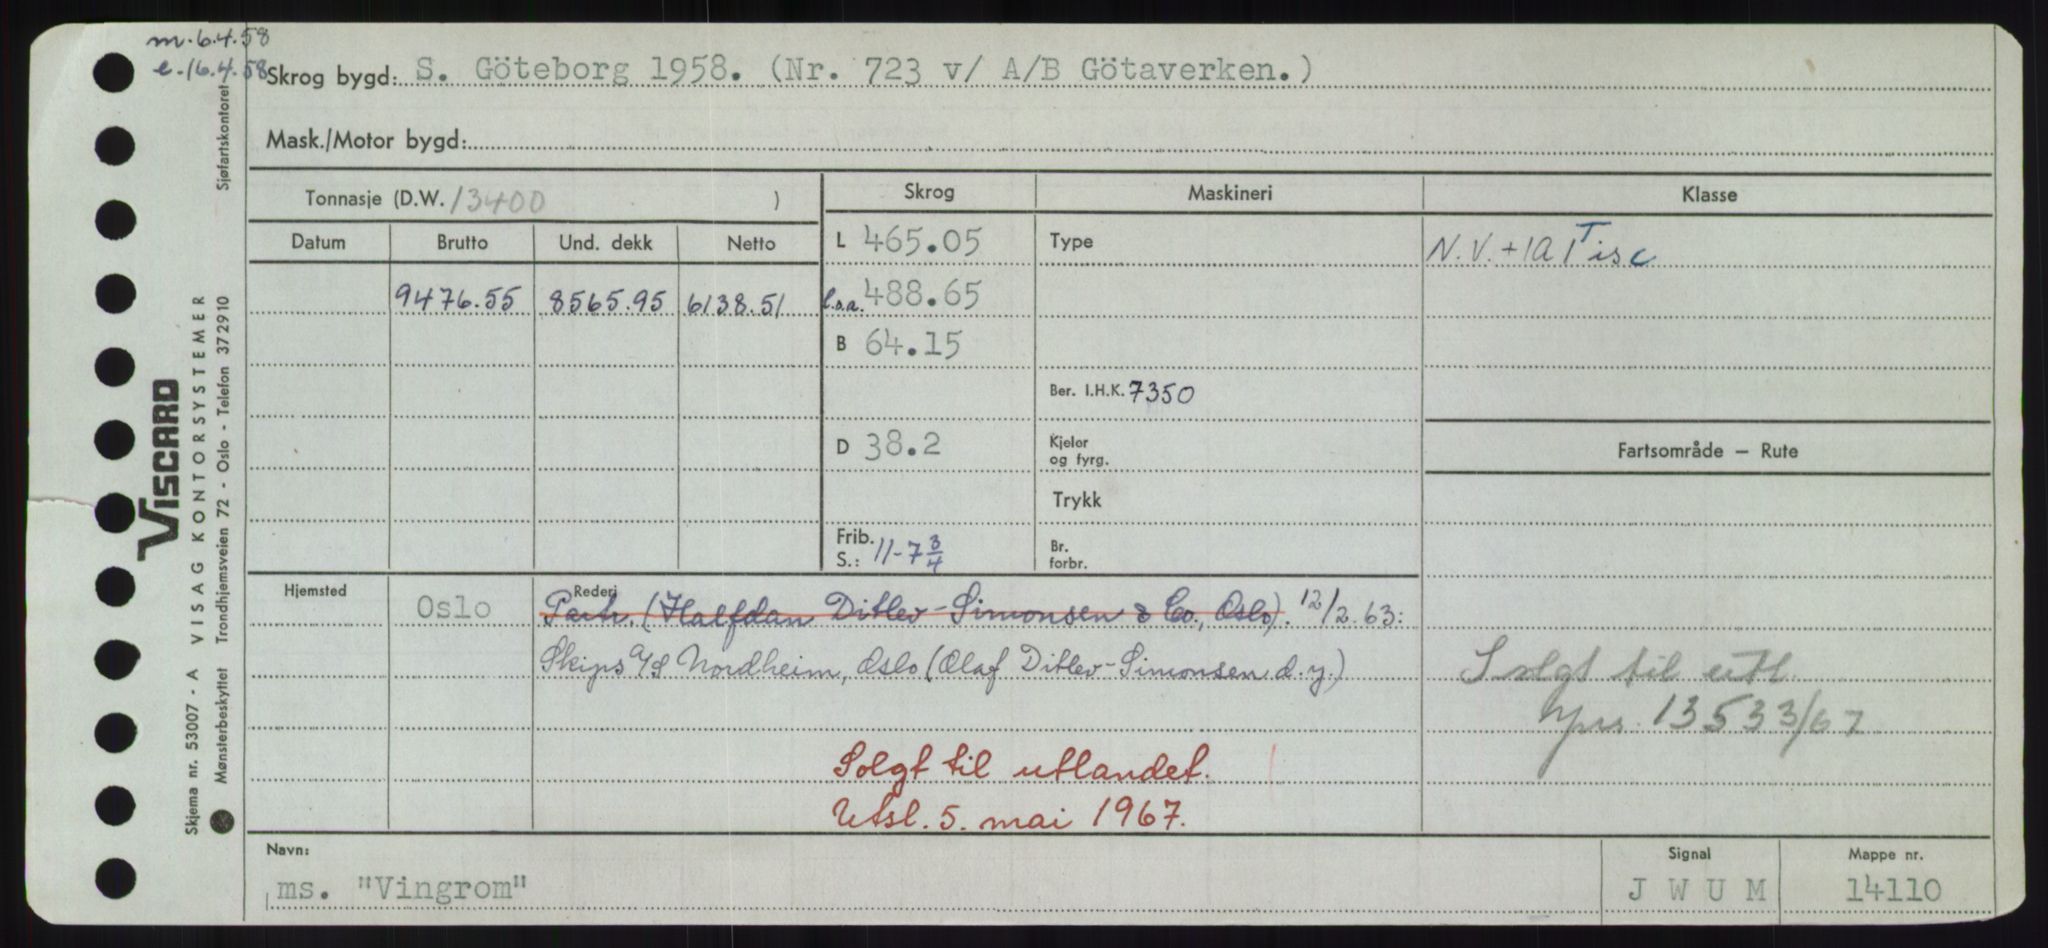 m. 6.4.58
e. 16.4.58
Skrog bygd: S. Göteborg 1958. (Nr. 723 v/ A/B Götaverken.)
Mask./Motor bygd:
Tonnasje (D.W. 13400 )
Skrog
Maskineri
Klasse
Datum Brutto Und. dekk Netto
L 465.05
Type
N.V. +1A1 T isc
9476.55 8565.95 6138.51
l.o.a. 488.65
B 64.15
Ber. I.H.K. 7350
D 38.2
Kjeler
og fyrg.
Fartsområde — Rute
Trykk
Frib.
S.: 11-7 3/4
Br.
forbr.
Hjemsted
Oslo
Rederi
Partr. (Halfdan Ditlev-Simonsen & Co., Oslo). 12/2.63:
Skips A/S Nordheim, Oslo (Olaf Ditlev-Simonsen d.y.)
Solgt til utl.
13533/67
Solgt til utlandet.
Utsl. 5. mai 1967.
Navn:
ms. "Vingrom"
Signal
J W U M
Mappe nr.
14110
Skjema nr. 53007 - A VISAG KONTORSYSTEMER
VISCARD
Mønsterbeskyttet Trondhjemsveien 72 - Oslo - Telefon 372910
Sjøfartskontoret